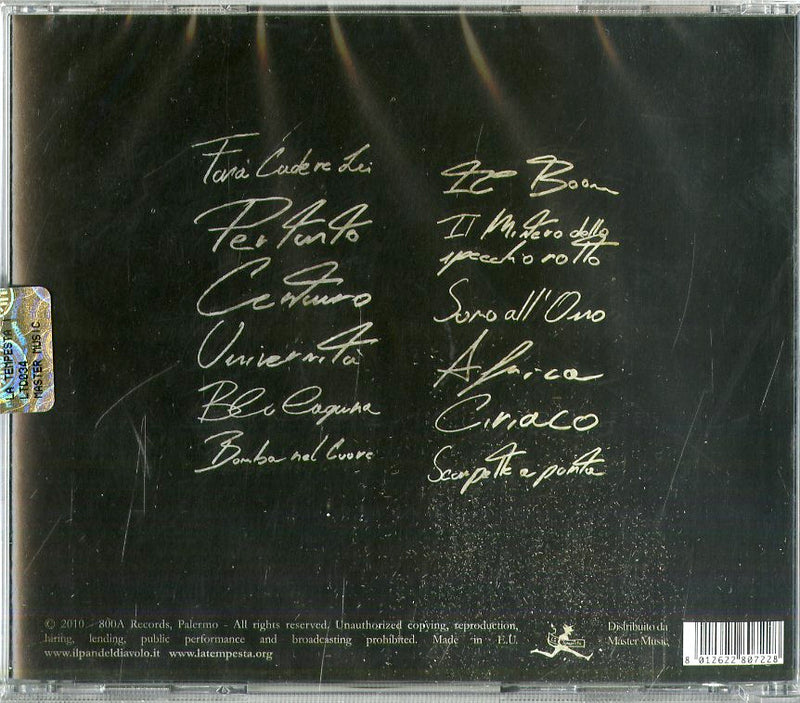 Farà Cadere Lei
Pertanto
Centauro
Università
Blu laguna
Bomba nel Cuore
Il Boom
Il Mistero dello
specchio rotto
Sono all'Osso
Africa
Ciriaco
Scarpette a punta
LA TEMPESTA
LTD034
MASTER MUSIC
© 2010 - 800A Records, Palermo - All rights reserved. Unauthorized copying, reproduction,
hiring, lending, public performance and broadcasting prohibited. Made in E.U.
www.ilpandeldiavolo.it www.latempesta.org
Distribuito da
Master Music
8 012622 807228